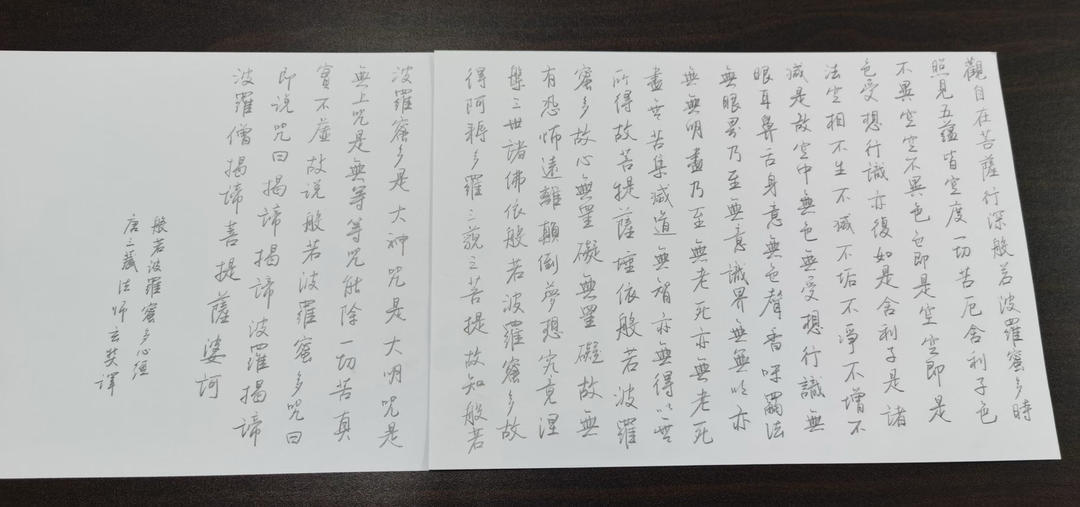 觀自在菩薩行深般若波羅蜜多時
照見五蘊皆空度一切苦厄舍利子色
不異空空不異色色即是空空即是
色受想行識亦復如是舍利子是諸
法空相不生不滅不垢不淨不增不
减是故空中無色無受想行識無
眼耳鼻舌身意無色聲香味觸法
無眼界乃至無意識界無無明亦
無無明盡乃至無老死亦無老死
盡無苦集滅道無智亦無得以無
所得故菩提薩埵依般若波羅
蜜多故心無罣礙無罣礙故無
有恐怖遠離顛倒夢想究竟涅
槃三世諸佛依般若波羅蜜多故
得阿耨多羅三藐三菩提故知般若
波羅蜜多是大神咒是大明咒是
無上咒是無等等咒能除一切苦真
實不虛故說般若波羅蜜多咒曰
即說咒曰揭諦揭諦波羅揭諦
波羅僧揭諦菩提薩婆訶
般若波羅蜜多心經
唐三藏法師玄奘譯